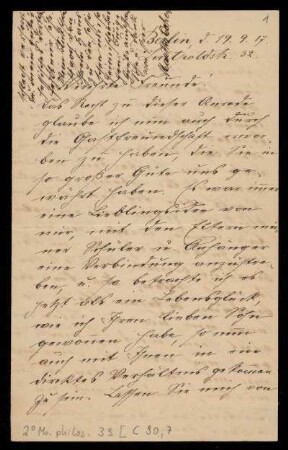 1
Berlin, d. 19. 9. 17
32.
Freunde!
Das Recht zu dieser Anrede
glaube ich nun auch durch
die Gastfreundschaft erwor-
ben zu haben, die Sie in
so großer Güte uns ge-
währt haben. Es war immer
eine Lieblingsidee von
mir, mit den Eltern mei-
ner Schüler u. Anhänger
eine Verbindung anzustre-
ben, u. so betrachte ich es
jetzt als ein Lebensglück,
wie ich Ihren lieben Sohn
gewonnen habe, so nun
auch mit Ihnen in ein
direktes Verhältnis gekommen
zu sein. Lassen Sie mich von
2° Ms. philos. 39 [C 30,7